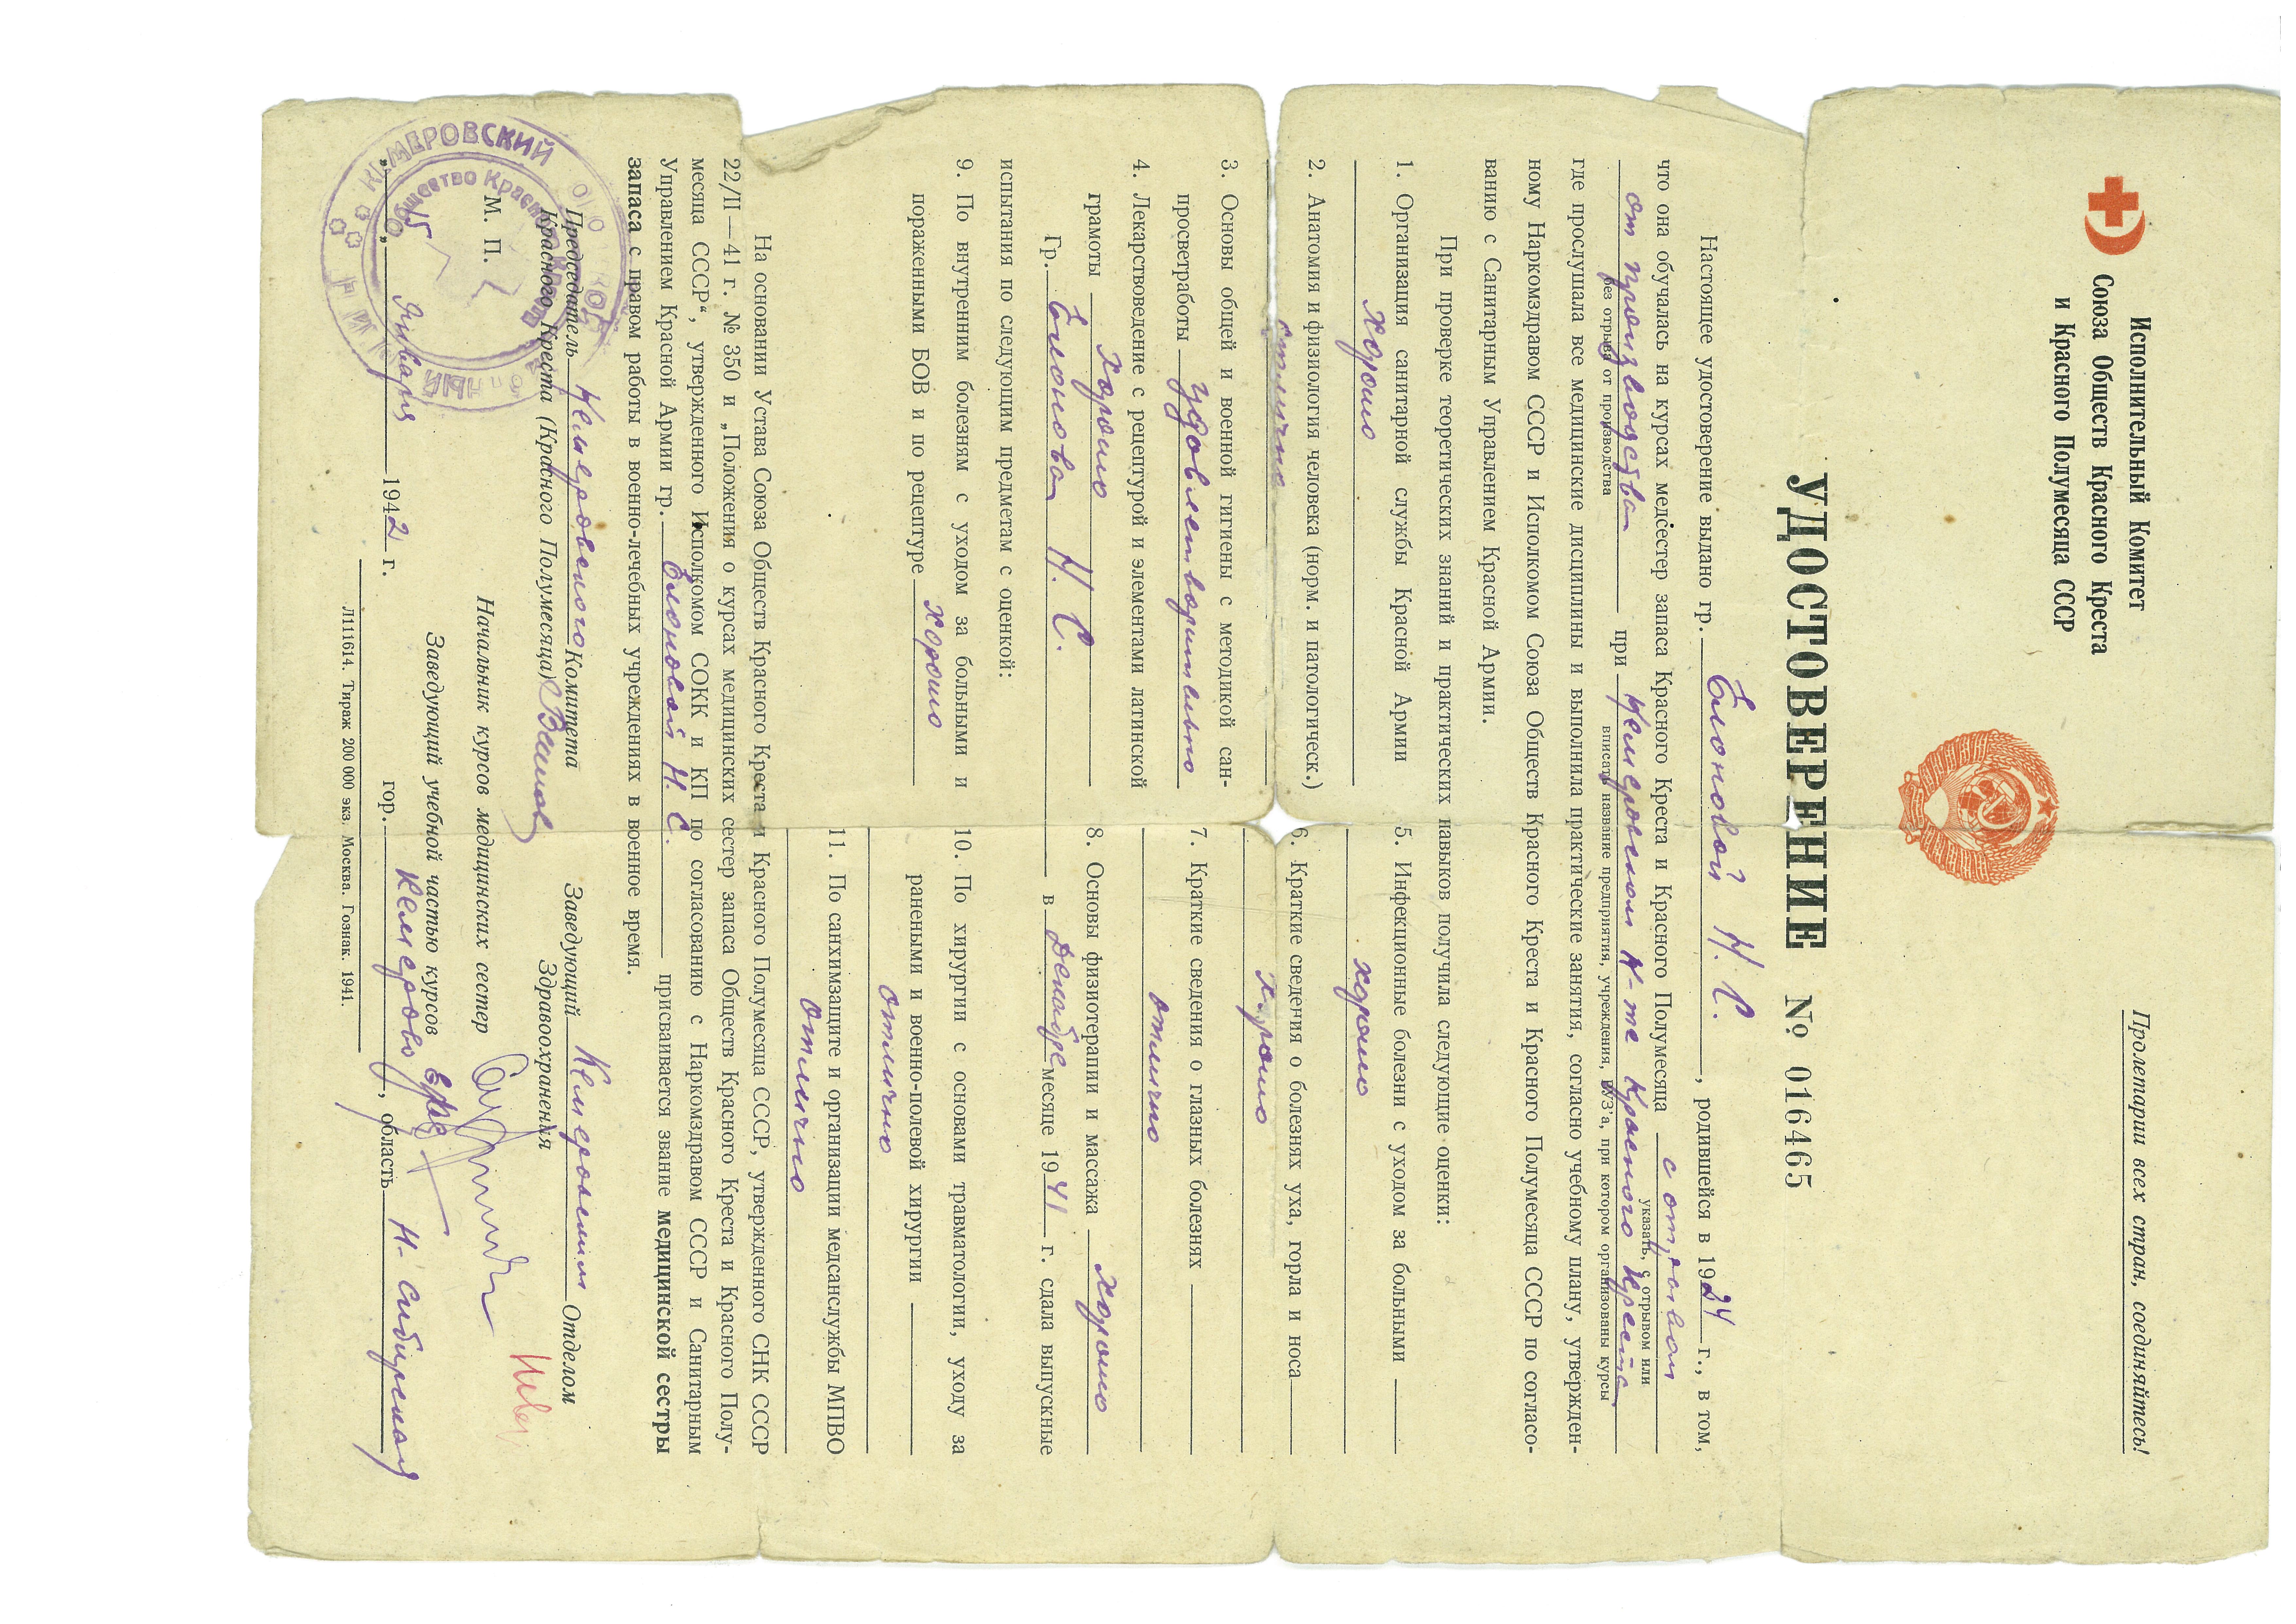 Исполнительный Комитет
Союза Обществ Красного Креста
и Красного Полумесяца СССР
Пролетарии всех стран, соединяйтесь!
УДОСТОВЕРЕНИЕ № 016465
Настоящее удостоверение выдано гр. Блоновой Н. С. , родившейся в 1924 г., в том,
что она обучалась на курсах медсестер запаса Красного Креста и Красного Полумесяца с отрывом
указать, с отрывом или
от производства при Кемеровском К-те Красного Креста
без отрыва от производства вписать название предприятия, учреждения, ВУЗ'а, при котором организованы курсы
где прослушала все медицинские дисциплины и выполнила практические занятия, согласно учебному плану, утвержден-
ному Наркомздравом СССР и Исполкомом Союза Обществ Красного Креста и Красного Полумесяца СССР по согласо-
ванию с Санитарным Управлением Красной Армии.
При проверке теоретических знаний и практических навыков получила следующие оценки:
1. Организация санитарной службы Красной Армии
хорошо
2. Анатомия и физиология человека (норм. и патологическ.)
отлично
3. Основы общей и военной гигиены с методикой сан-
просветработы удовлетворительно
4. Лекарствоведение с рецептурой и элементами латинской
грамоты хорошо
5. Инфекционные болезни с уходом за больными
хорошо
6. Краткие сведения о болезнях уха, горла и носа
хорошо
7. Краткие сведения о глазных болезнях
отлично
8. Основы физиотерапии и массажа хорошо
Гр. Блонова Н. С. в Декабре месяце 1941 г. сдала выпускные
испытания по следующим предметам с оценкой:
9. По внутренним болезням с уходом за больными и
пораженными БОВ и по рецептуре хорошо
10. По хирургии с основами травматологии, уходу за
ранеными и военно-полевой хирургии
отлично
11. По санхимзащите и организации медсанслужбы МПВО
отлично
На основании Устава Союза Обществ Красного Креста и Красного Полумесяца СССР, утвержденного СНК СССР
22/II—41 г. № 350 и „Положения о курсах медицинских сестер запаса Обществ Красного Креста и Красного Полу-
месяца СССР“, утвержденного Исполкомом СОКК и КП по согласованию с Наркомздравом СССР и Санитарным
Управлением Красной Армии гр. Блоновой Н. С. присваивается звание медицинской сестры
запаса с правом работы в военно-лечебных учреждениях в военное время.
Председатель Кемеровского Комитета
Красного Креста (Красного Полумесяца)
Заведующий Кемеровским Отделом
Здравоохранения
М. П.
Начальник курсов медицинских сестер
Заведующий учебной частью курсов
„15“ Января 1942 г.
гор. Кемерово, область Н-Сибирская
Л111614. Тираж 200 000 экз. Москва. Гознак. 1941.
КЕМЕРОВСКИЙ
Общество Красного Креста